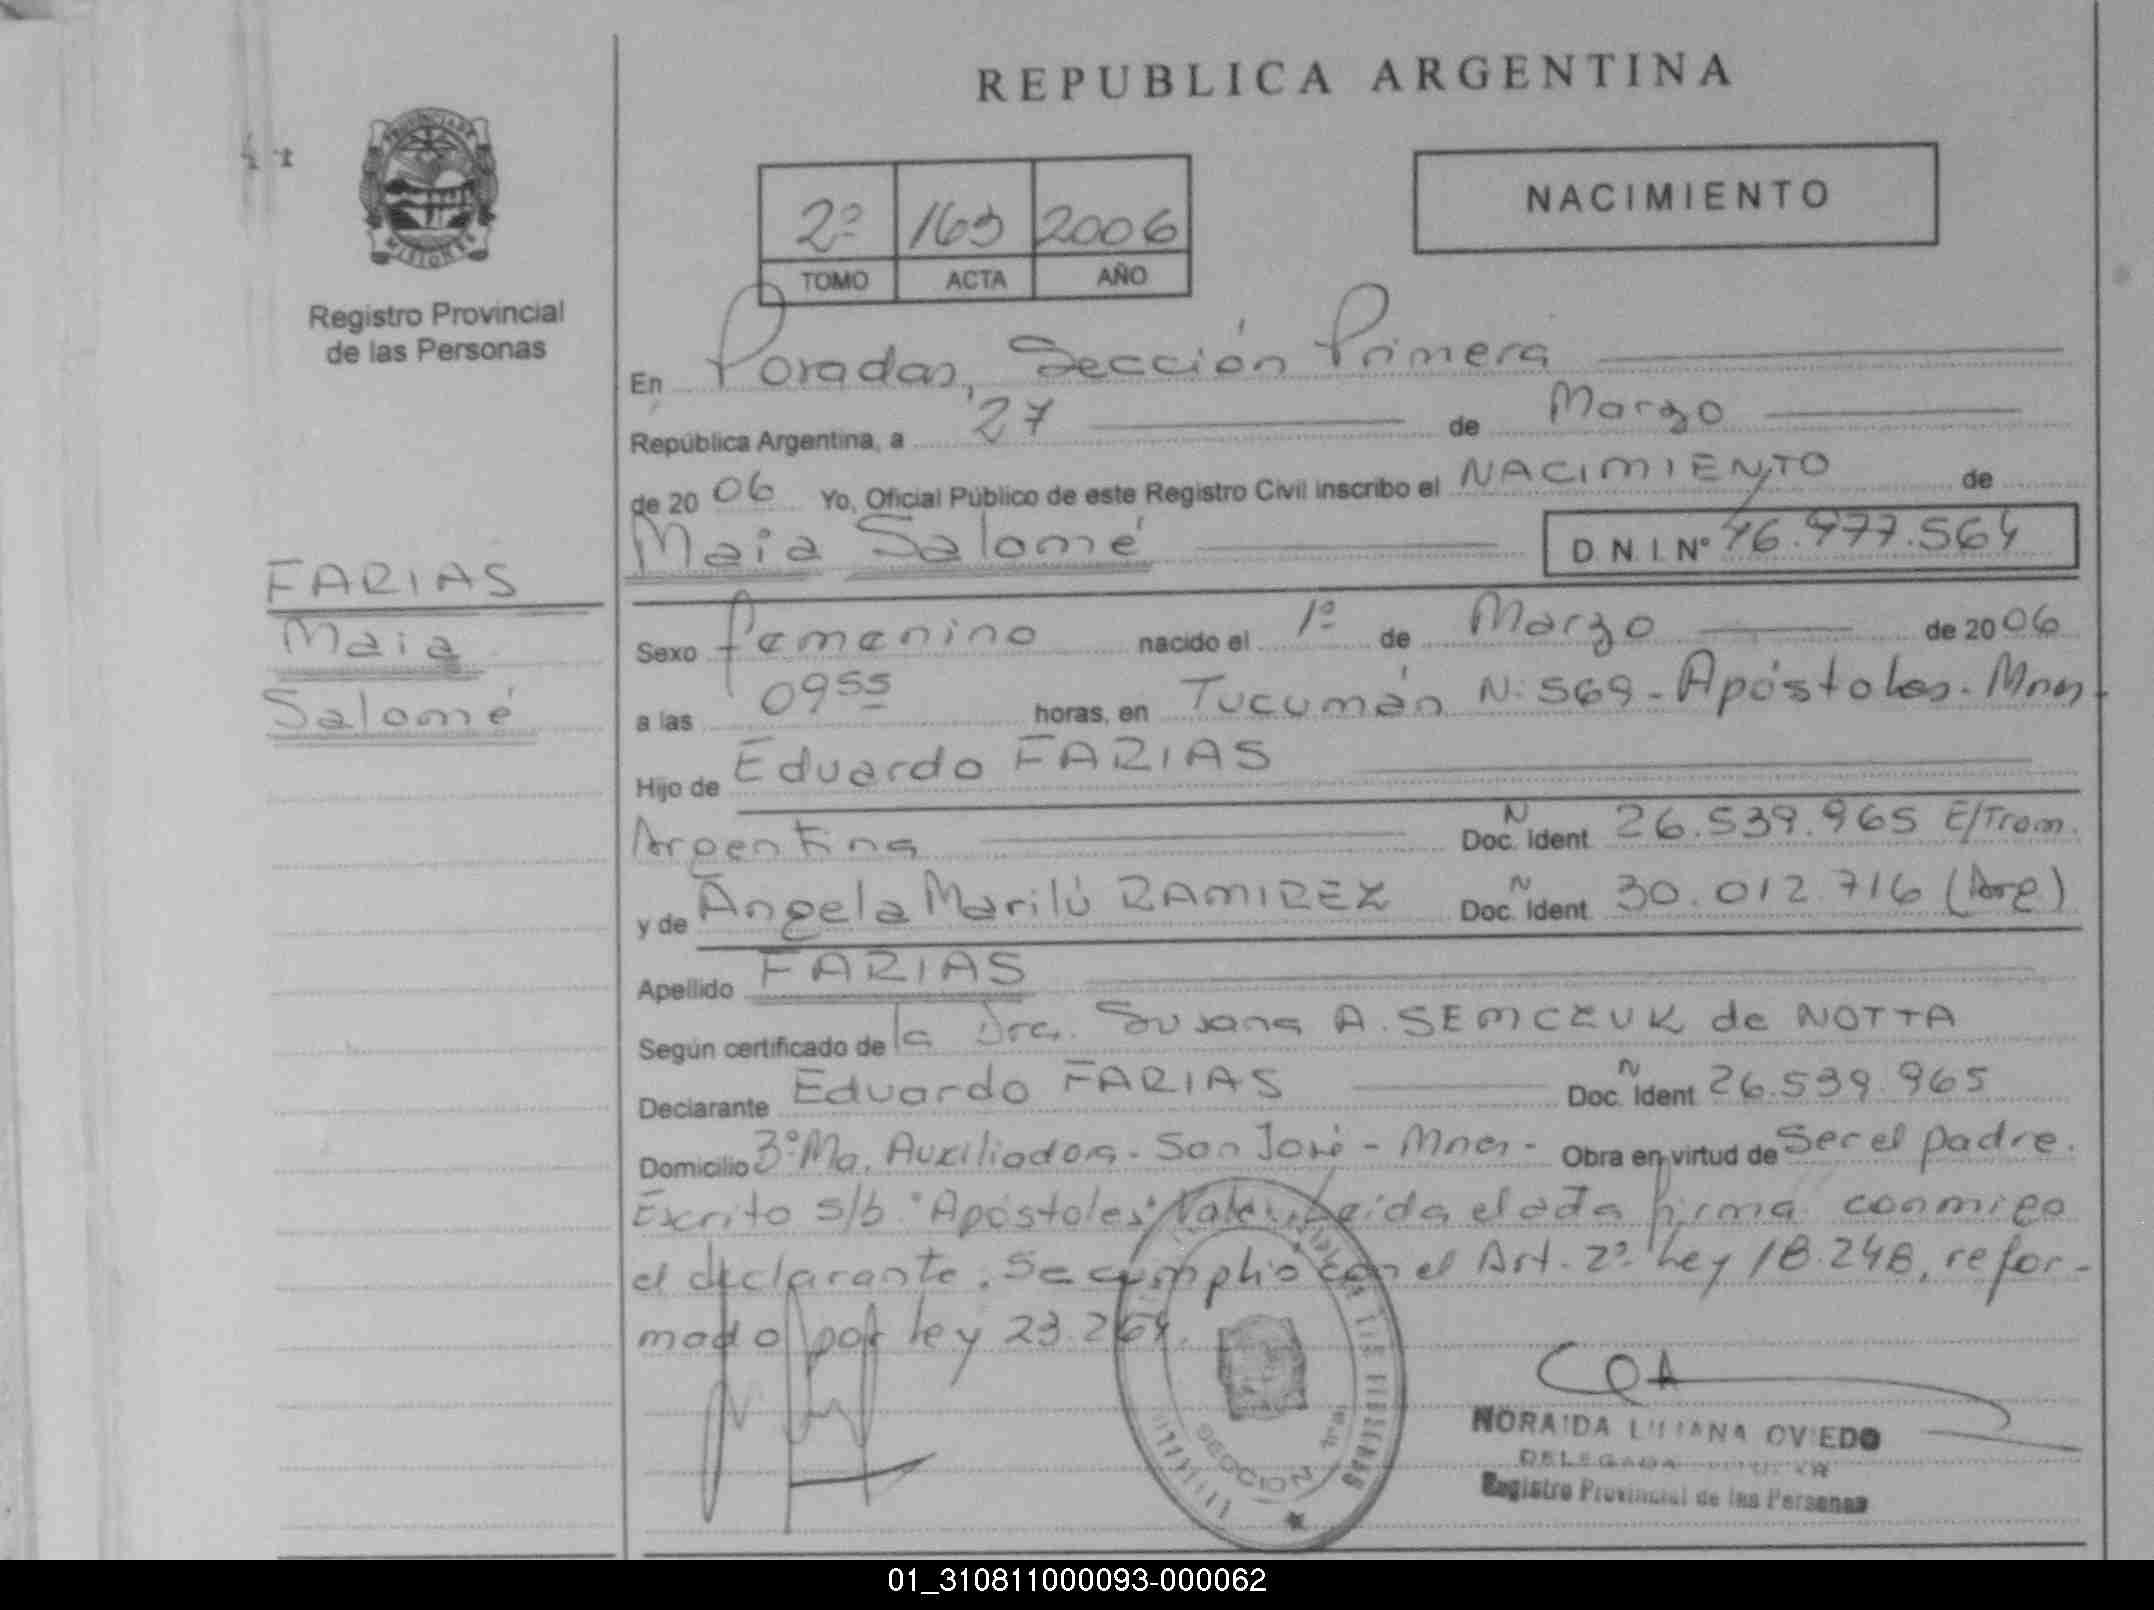 REPUBLICA ARGENTINA
PROVINCIA DE
MISIONES
Registro Provincial
de las Personas
NACIMIENTO
2º 163 2006
TOMO ACTA AÑO
En Posadas, Sección Primera
República Argentina, a 27 de Marzo
de 2006 Yo, Oficial Público de este Registro Civil inscribo el NACIMIENTO de
Maia Salomé D.N.I.Nº 46.977.564
FARIAS
Maia
Salomé
Sexo femenino nacido el 1º de Marzo de 2006
a las 0955 horas, en Tucumán N: 569 - Apóstoles - Mnes
Hijo de Eduardo FARIAS
Argentina N Doc. Ident 26.539.965 E/Tram.
y de Angela Marilú RAMIREZ N Doc. Ident 30.012.716 (Arg)
Apellido FARIAS
Según certificado de la Dra. Susana A. SEMCZUK de NOTTA
Declarante Eduardo FARIAS N Doc. Ident 26.539.965
Domicilio 3º Ma. Auxiliadora - San José - Mnes - Obra en virtud de ser el padre.
Escrito s/b "Apóstoles" Vale. Leída el acta firma conmigo
el declarante. Se cumplió con el Art. 2º Ley 18.248, refor-
mado por ley 23.264.
SECCION 1ra
NORAIDA LILIANA OVIEDO
DELEGADA
Registro Provincial de las Personas
01_310811000093-000062